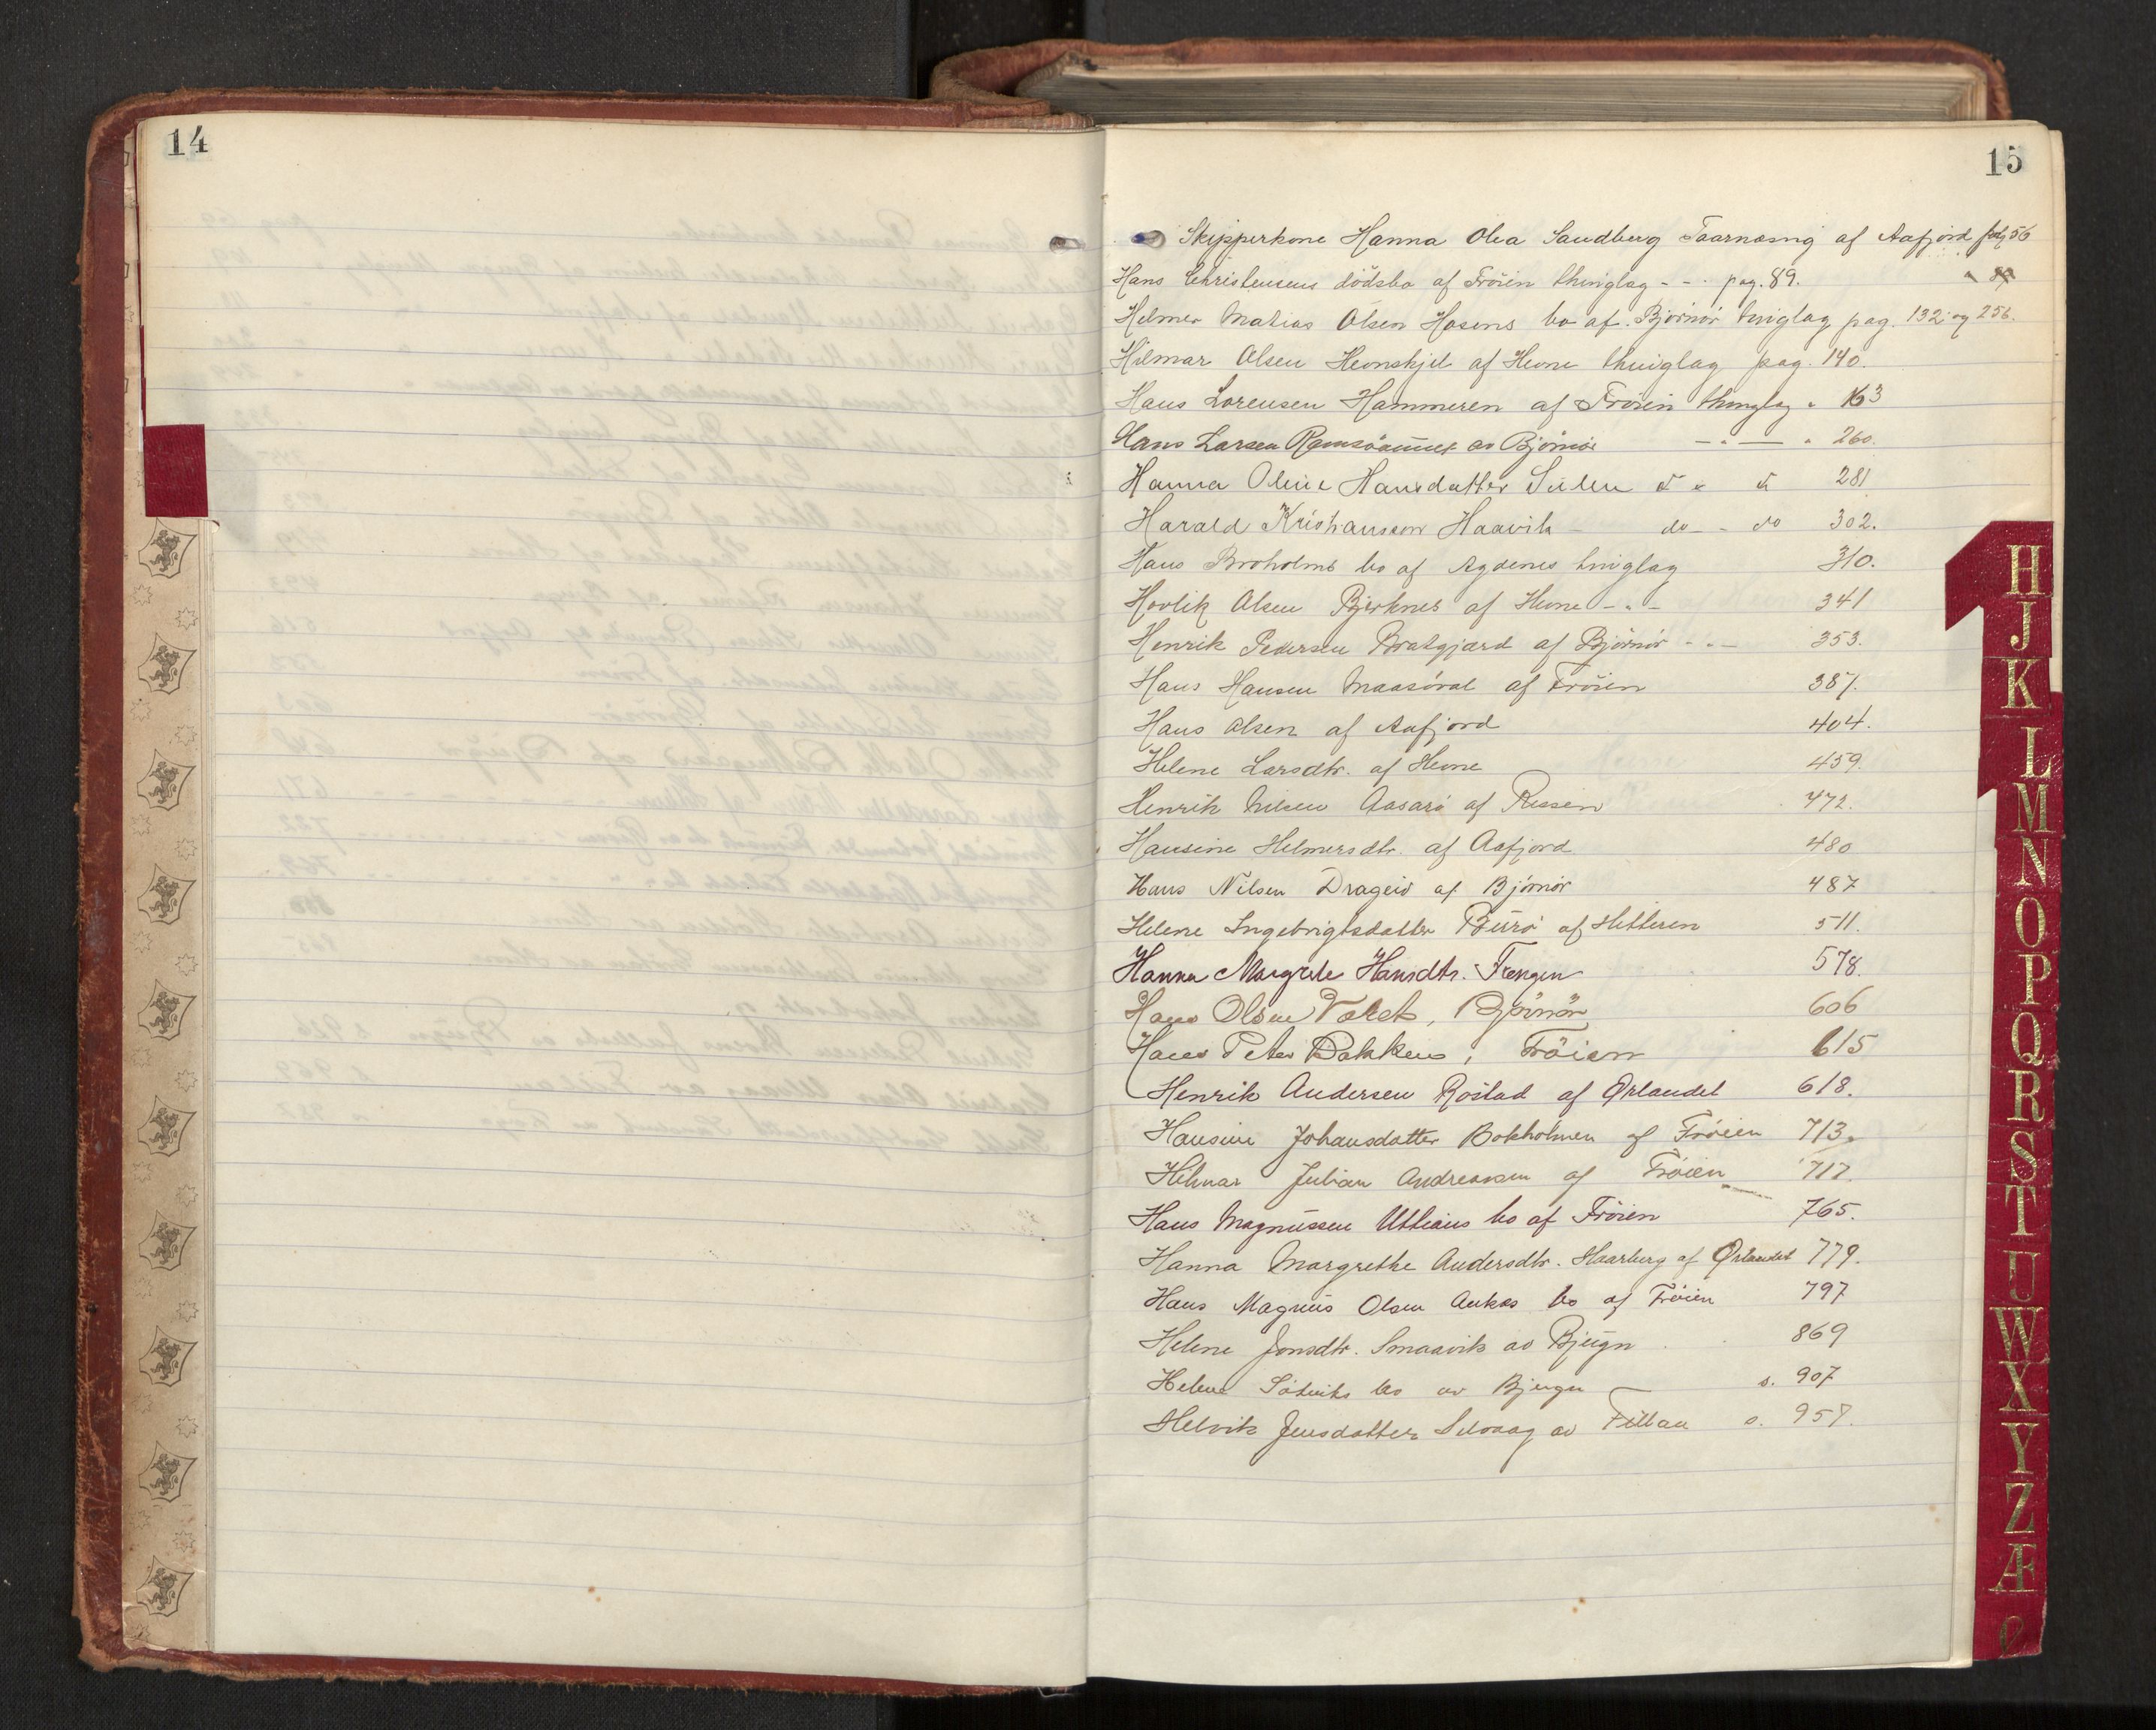 14
15
Skipperkone Hanna Olea Sandberg Taarnæsvig af Aafjord pag 56
Hans Christensens dödsbo af Fröien thinglag - - · pag. 89.
Helmer Matias Olsen Hosens bo af Björnör tinglag pag. 132 og 256.
Hilmar Olsen Hevnskjel af Hevne thinglag pag. 140.
Hans Lorensen Hammeren af Fröien thinglag " 163
Hans Larsen av Björnör — " — " 260.
Hanna Oline Hansdatter Sulen 281
Harald Kristiansson Haavik - do - - do 302.
Hans Broholms bo af Agdenes tinglag 310.
Hovlik Olsen Bjerknes af Hevne - " - 341
Henrik Pedersen Bratgjærd af Björnör - " - 353.
Hans Hansen Maasöval af Fröien 387.
Hans Olsen af Aafjord 404.
Helene Larsdtr. af Hevne 459.
Henrik Nilsen Aasarö af Rissen 472.
Hansine Helmersdtr. af Aafjord 480
Hans Nilsen Drageid af Björnör 487
Helene Ingebrigtsdatter Burö af Hitteren 511.
Hanna Margrete Hansdtr. Trengen 578.
Hans Olsen , Björnör 606
Hans Peter Bakken, Fröien 615
Henrik Andersen Röstad af Ørlandet 618.
Hansine Johansdatter Bokholmen af Fröien 713.
Hilmar Julian Andreassen af Fröien 717.
Hans Magnussen Uttians bo af Fröien 765.
Hanna Margrethe Andersdtr. Haarberg af Ørlandet 779.
Hans Magnus Olsen Ankes bo af Fröien 797
Helene Jonsdtr. Smaavik av Bjugn 869
Helene Sötviks bo av Bjugn s. 907
Helvik Jensdatter Selvaag av Fillan s. 957.
H
J
K
L
M
N
O
P
Q
R
S
T
U
W
X
Y
Z
Æ